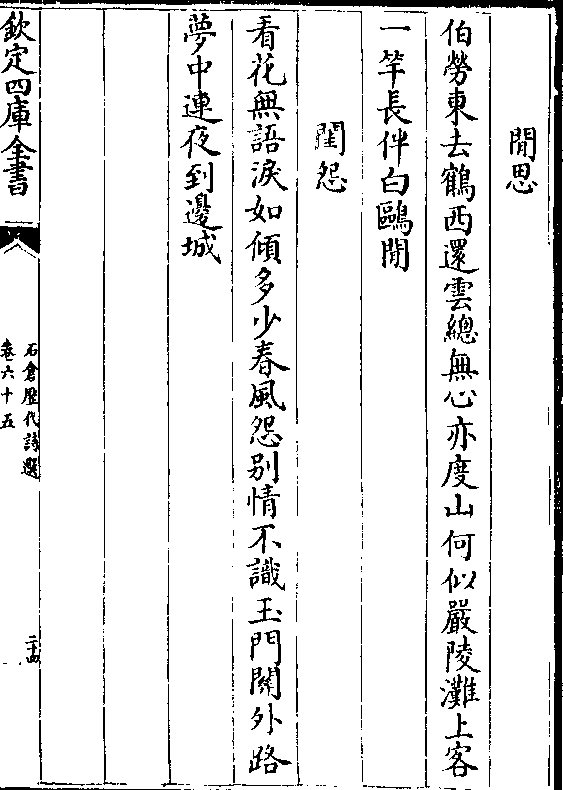 閒思
伯勞東去鶴西還雲總無心亦度山何似嚴陵灘上客
一竿長伴白鷗閒
閨怨
看花無語淚如傾多少春風怨别情不識玉門關外路
夢中連夜到邊城
欽定四庫全書
石倉歷代詩選
卷六十五
二十四